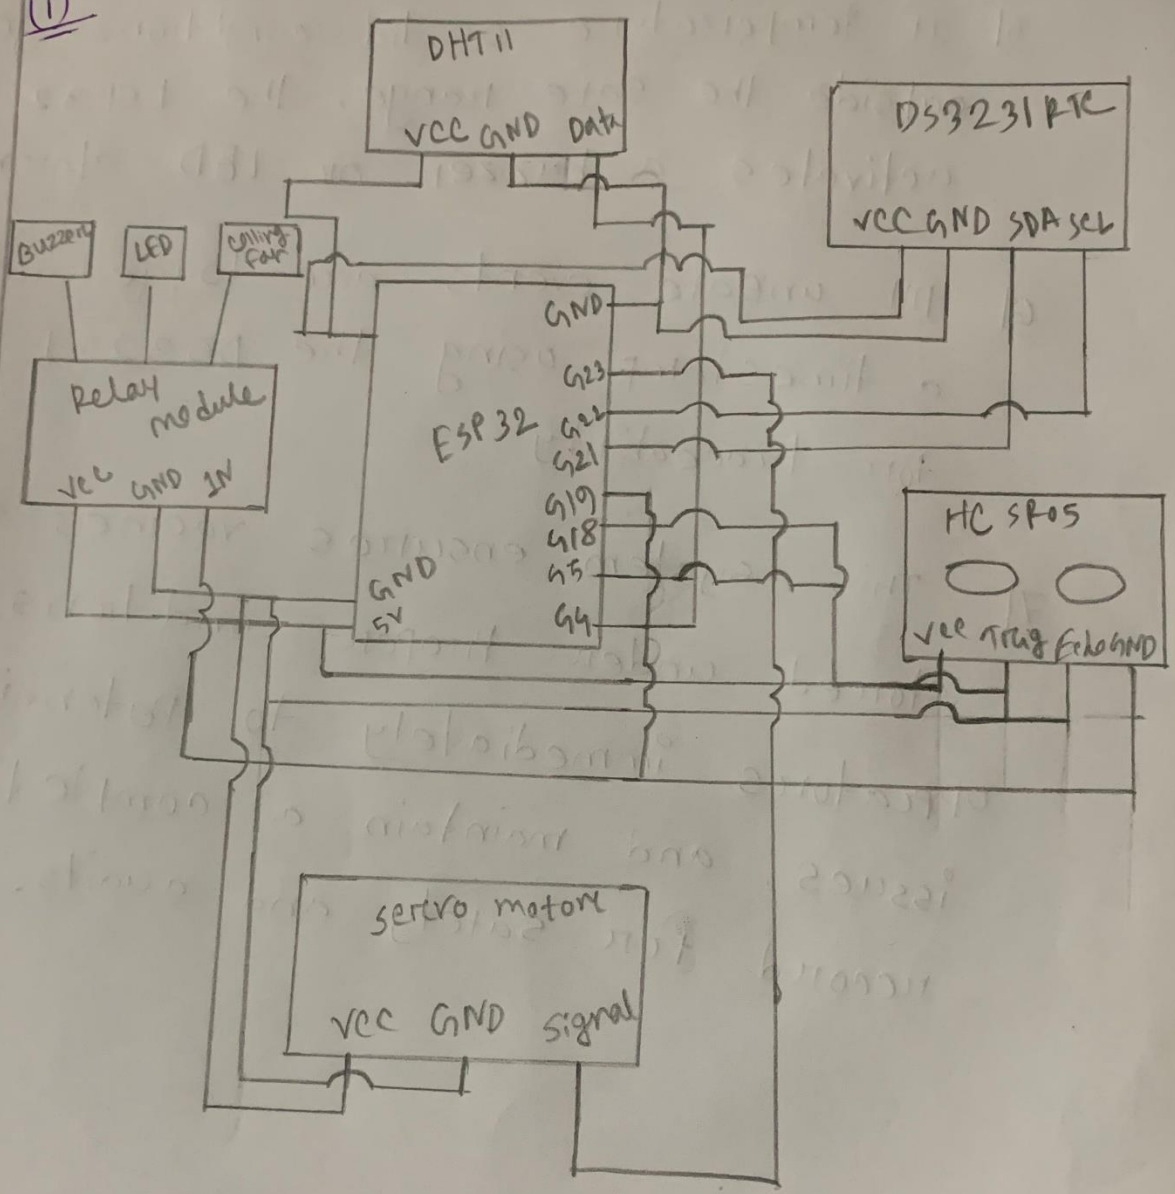 (1)
DHT11
VCC GND Data
DS3231 RTC
VCC GND SDA SCL
Buzzer
LED
Colling
Fan
Relay
module
VCC GND IN
ESP32
GND
G23
G22
G21
G19
G18
G5
G4
GND
5V
HC SR05
Vcc Trig Echo GND
Servo motor
VCC GND Signal